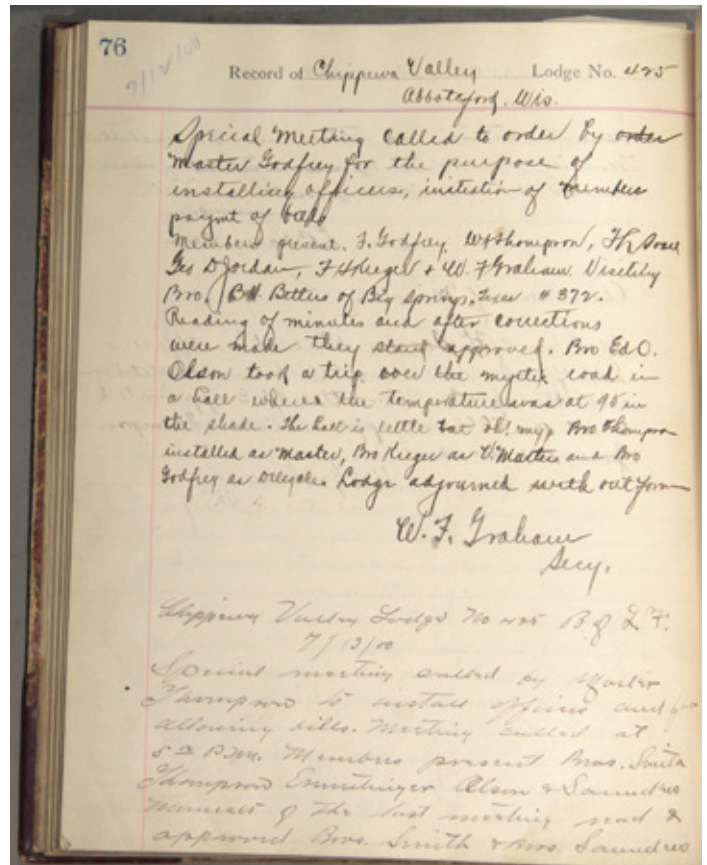 76
7/12/00
Record of Chippewa Valley Lodge No. 425
Abbotsford, Wis.
Special Meeting called to order by order
Master Godfrey for the purpose of
installing officers, initiation of members
paymt of bills
Members present. F. Godfrey, W Thompson,
Geo D Jordan, F H Kieger & W. F Graham. Visiting
Bro. B H. Betters of Big Springs, Texas # 372.
Reading of minutes and after corrections
were made they stand approved. Bro Ed O.
Olson took a trip over the mystic road in
a hall where the temperature was at 95 in
the shade. The hall is little but Oh! my Bro Thompson
installed as Master, Bro Kieger as V. Master and Bro
Godfrey as Delegate. Lodge adjourned with out form
W. F. Graham
Secy.
Chippewa Valley Lodge No 425 B of L F.
7/13/00
Special meeting called by Master
Thompson to install officers and for
allowing bills. Meeting called at
5 P.M. Members present Bros. Smith
Thompson Olson & Saundres
Minutes of the last meeting read &
approved Bros. Smith & Bros. Saundres